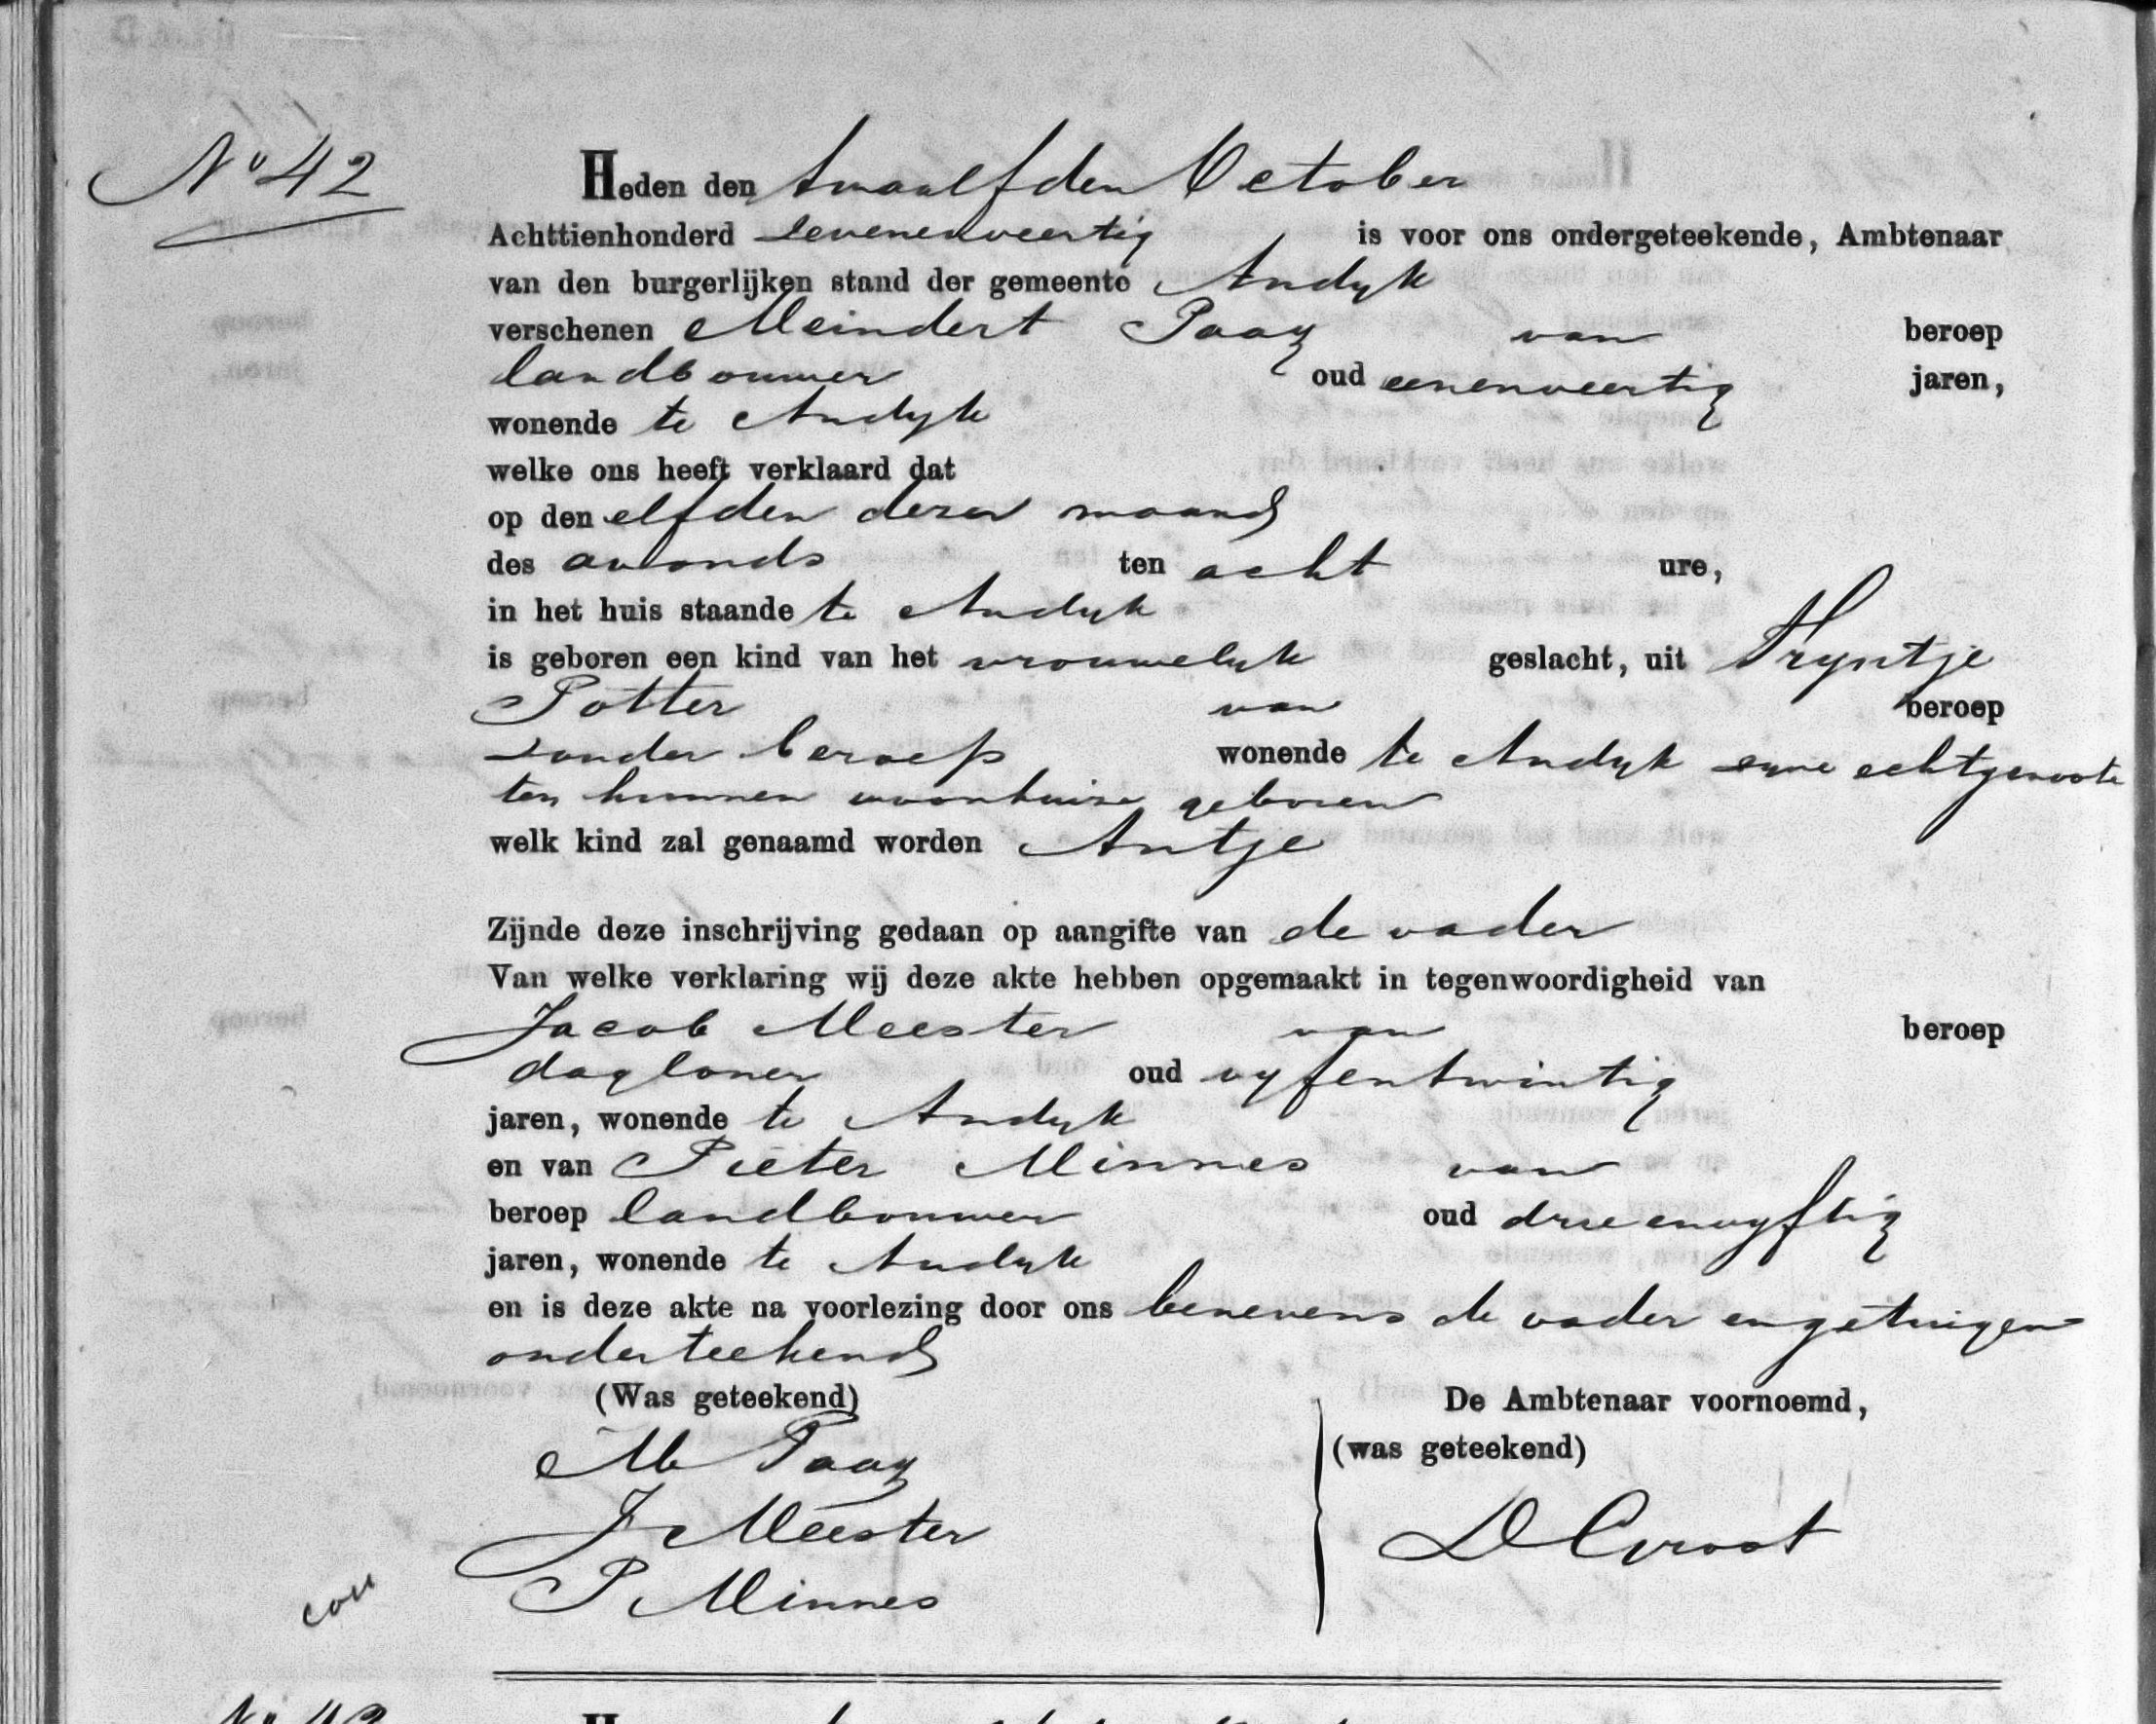 No 42
Heden den twaalfden October
Achttienhonderd zevenenveertig is voor ons ondergeteekende, Ambtenaar
van den burgerlijken stand der gemeente Andyk
verschenen Meindert Paaz van beroep
landbouwer oud eenenveertig jaren,
wonende te Andyk
welke ons heeft verklaard dat
op den elfden dezer maand
des avonds ten acht ure,
in het huis staande te Andyk
is geboren een kind van het vrouwelyk geslacht, uit Tryntje
Potter van beroep
zonder beroep wonende te Andyk zyne echtgenoote
ten hunnen woonhuize geboren
welk kind zal genaamd worden Antje
Zijnde deze inschrijving gedaan op aangifte van de vader
Van welke verklaring wij deze akte hebben opgemaakt in tegenwoordigheid van
Jacob Meester van beroep
dagloner oud vyfentwintig
jaren, wonende te Andyk
en van Pieter Minnes van
beroep landbouwer oud drieenvyftig
jaren, wonende te Andyk
en is deze akte na voorlezing door ons benevens de vader en getuigen
onderteekend
(Was geteekend) De Ambtenaar voornoemd,
M Paaz (was geteekend)
J Meester D Groot
P Minnes
con